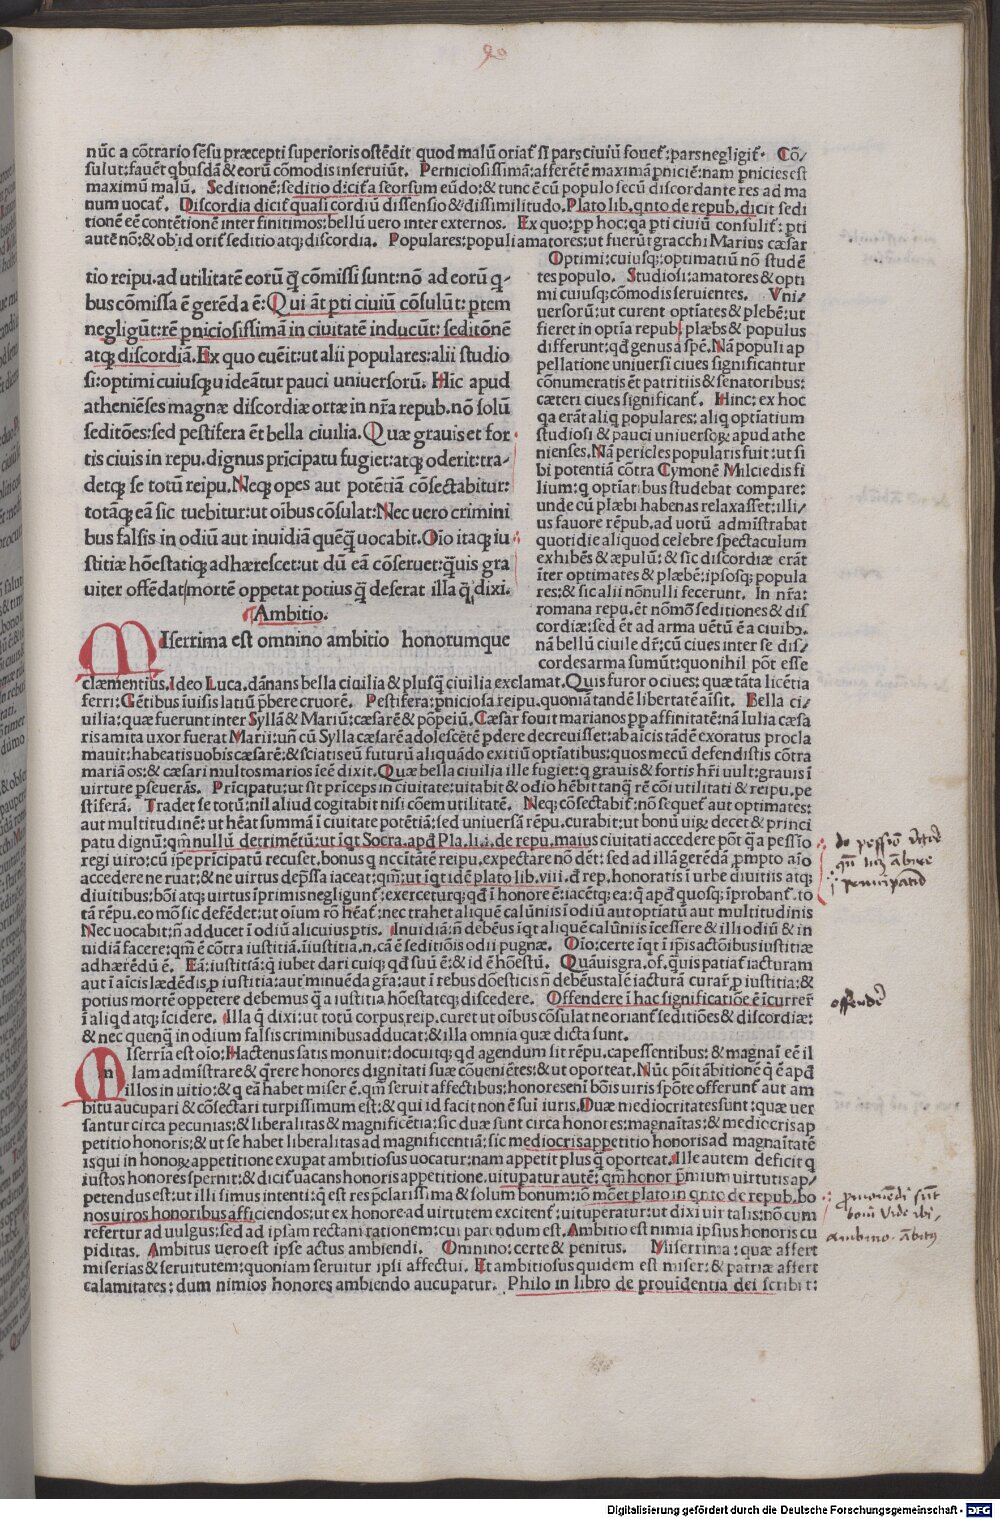 90
nūc a cōtrario sēsu præcepti superioris ostēdit quod malū oriat̄ si pars ciuiū fouet̄: pars negligit̄. Cō/
sulut: fauēt qbusdā & eorū cōmodis inseruiūt. Perniciosissimā: afferētē maximā pniciē: nam pernicies est
maximū malū. Seditionē: seditio dicit̄ a seorsum eūdo: & tunc ē cū populo secū discordante res ad ma
num uocat̄. Discordia dicit̄ quasi cordiū dissensio & dissimilitudo. Plato lib. qnto de repub. dicit sedi
tionē eē contētionē inter finitimos: bellū uero inter externos. Ex quo: pp hoc: qa pti ciuiū consulit̄: pti
autē nō: & ob id orit̄ seditio atq; discordia. Populares: populi amatores: ut fuerūt gracchi Marius cæsar
Optimi: cuiusq; optimatiū nō studē
tes populo. Studiosi: amatores & opti
mi cuiusq; cōmodis seruientes. Vni/
uersorū: ut curent optiātes & plebē: ut
fieret in optīa repub. plæbs & populus
differunt: qd̄ genus a spē. Nā populi ap
pellatione uniuersi ciues significantur
cōnumeratis ēt patritiis & senatoribus:
cæteri ciues significant̄. Hinc: ex hoc
qa erāt aliq populares: aliq optīatium
studiosi & pauci uniuersoꝝ: apud athe
nienses. Nā pericles popularis fuit: ut si
bi potentiā cōtra Cymonē Milciedis fi
lium: q optīatibus studebat compare:
unde cū plæbi habenas relaxasset: illi/
us fauore rēpub. ad uotū admīstrabat
quotidie aliquod celebre spectaculum
exhibēs & æpulū: & sic discordiæ erāt
īter optimates & plæbē: ipsosq; popula
res: & sic alii nōnulli fecerunt. In nr̄a:
romana repu. ēt nōmō seditiones & dis
cordiæ: sed ēt ad arma uētū ē a ciuibꝫ.
nā bellū ciuile dr̄: cū ciues inter se dis/
cordes arma sumūt: quo nihil pōt esse
tio reipu. ad utilitatē eorū q̄ cōmissi sunt: nō ad eorū q-
bus cōmissa ē gerēda ē: Qui āt pti ciuiū cōsulūt: ptem
negligūt: rē pniciosissimā in ciuitatē inducūt: seditōnē
atq; discordiā. Ex quo euēit: ut alii populares: alii studio
si: optimi cuiusq; uideātur pauci uniuersorū. Hīc apud
atheniēses magnæ discordiæ ortæ in nr̄a repub. nō solū
seditōes: sed pestifera ēt bella ciuilia. Quæ grauis et for
tis ciuis in repu. dignus prīcipatu fugiet: atq; oderit: tra-
detq; se totū reipu. Neq; opes aut potētiā cōsectabitur:
totāq; eā sic tuebitur: ut oībus cōsulat: Nec uero crimini
bus falsis in odiū aut inuidiā quēq̄ uocabit. Oīo itaq; iu
stitiæ hōestatiq; adhærescet: ut dū eā cōseruet: q̄uis gra
uiter offēdat mortē oppetat potius q̄ deserat illa q̄ dixi.
Ambitio.
MIserrima est omnino ambitio honorumque
clæmentius. Ideo Luca. dānans bella ciuilia & plusq̄ ciuilia exclamat. Quis furor o ciues: quæ tāta licētia
ferri: Gētibus īuisis latiū p̄bere cruorē. Pestifera: pniciosa reipu. quoniā tandē libertatē aīsit. Bella ci/
uilia: quæ fuerunt inter Syllā & Mariū: cæsarē & pōpeiū. Cæsar fouit marianos pp affinitatē: nā Iulia cæsa
ris amita uxor fuerat Marii: uñ cū Sylla cæsarē adolescētē pdere decreuisset: ab aīcis tādē exoratus procla
mauit: habeatis uobis cæsarē: & sciatis eū futurū aliquādo exitiū optīatibus: quos mecū defendistis cōtra
mariāos: & cæsari multos marios īeē dixit. Quæ bella ciuilia ille fugiet: q grauis & fortis hr̄i uult: grauis ī
uirtute pseuerās. Prīcipatu: ut sit prīceps in ciuitate: uitabit & odio hēbit tanq̄ rē cōi utilitati & reipu. pe
stiferā. Tradet se totū: nil aliud cogitabit nisi cōem utilitatē. Neq; cōsectabit̄: nō sequet̄ aut optimates:
aut multitudinē: ut hēat summā ī ciuitate potētiā: sed uniuersā rēpu. curabit: ut bonū uiꝝ decet & princi
patu dignū: qm̄ nullū detrimētū: ut īqt Socra. apd̄ Pla. li. i. de repu. maius ciuitati accedere pōt q̄ a pessīo
regi uiro: cū īpe prīcipatū recuset. bonus q nccītatē reipu. expectare nō dēt: sed ad illā gerēdā pmpto aīo
accedere ne ruat: & ne uirtus dep̄ssa iaceat: qm̄: ut īqt idē plato lib. viii. d̄ rep. honoratis ī urbe diuitiis atq;
diuitibus: bōi atq; uirtus īprimis negligunt̄: exerceturq; qd̄ ī honore ē: iacētq; ea: q̄ apd̄ quosq; īprobant̄. to
tā rēpu. eo mō sic defēdet: ut oīum rō hēat̄: nec trahet aliquē calūniis ī odiū aut optīatū aut multitudinis
Nec uocabit: ñ adducet ī odiū alicuius ptis. Inuidiā: ñ debēus īqt aliquē calūniis īcessere & illi odiū & in
uidiā facere: qm̄ ē cōtra iustitiā. īiustitia. n. cā ē seditiōis odii pugnæ. Oīo: certe īqt ī īpīs actōibus iustitiæ
adhærēdū ē. Eā: iustitiā: q̄ iubet dari cuiq; qd̄ suū ē: & id ē hōestū. Quāuis gra. of. q̄uis patiat̄ iacturam
aut ī aīcis lædēdis p iustitia: aut minuēda gr̄a: aut ī rebus dōesticis ñ debēus talē iacturā curar̄ p iustitia: &
potius mortē oppetere debemus q̄ a iustitia hōestateq; discedere. Offendere ī hac significatiōe ē īcurrer̄
ī aliqd̄ atq; īcidere. Illa q̄ dixi: ut totū corpus reip. curet ut oībus cōsulat ne oriant̄ seditiōes & discordiæ:
& nec quenq̄ in odium falsis criminibus adducat: & illa omnia quæ dicta sunt.
MIserrīa est oīo: Hactenus satis monuit: docuitq; qd̄ agendum sit rēpu. capessentibus: & magnaī eē il
lam admīstrare & q̄rere honores dignitati suæ cōueniētes: & ut oporteat. Nūc pōit ābitionē q̄ ē apd̄
illos in uitio: & q eā habet miser ē. qm̄ seruit affectibus: honores enī bōis uiris spōte offerunt̄ aut am
bitu aucupari & cōsectari turpissimum est: & qui id facit non ē sui iuris. Duæ mediocritates sunt: quæ uer
santur circa pecunias: & liberalitas & magnificētia: sic duæ sunt circa honores: magnaītas: & mediocris ap
petitio honoris: & ut se habet liberalitas ad magnificentiā: sic mediocris appetitio honoris ad magnaītatē
is qui in honoꝝ appetitione exupat ambitiosus uocatur: nam appetit plus q̄ oporteat. Ille autem deficit q
iustos honores spernit: & dicit̄ uacans honoris appetitione. uitupatur autē: qm̄ honor p̄mium uirtutis ap/
petendus est: ut illi simus intenti: q̄ est res p̄clarissima & solum bonum: iō mōet plato in qnto de repub. bo
nos uiros honoribus afficiendos: ut ex honore ad uirtutem excitent̄: uituperatur: ut dixi uir talis: nō cum
refertur ad uulgus: sed ad ipsam rectam rationem: cui parendum est. Ambitio est nimia ipsius honoris cu
piditas. Ambitus uero est ipse actus ambiendi. Omnino: certe & penitus. Miserrima: quæ affert
miserias & seruitutem: quoniam seruitur ipsi affectui. Et ambitiosus quidem est miser: & patriæ affert
calamitates: dum nimios honores ambiendo aucupatur. Philo in libro de prouidentia dei scribit:
offendere
Digitalisierung gefördert durch die Deutsche Forschungsgemeinschaft - DFG